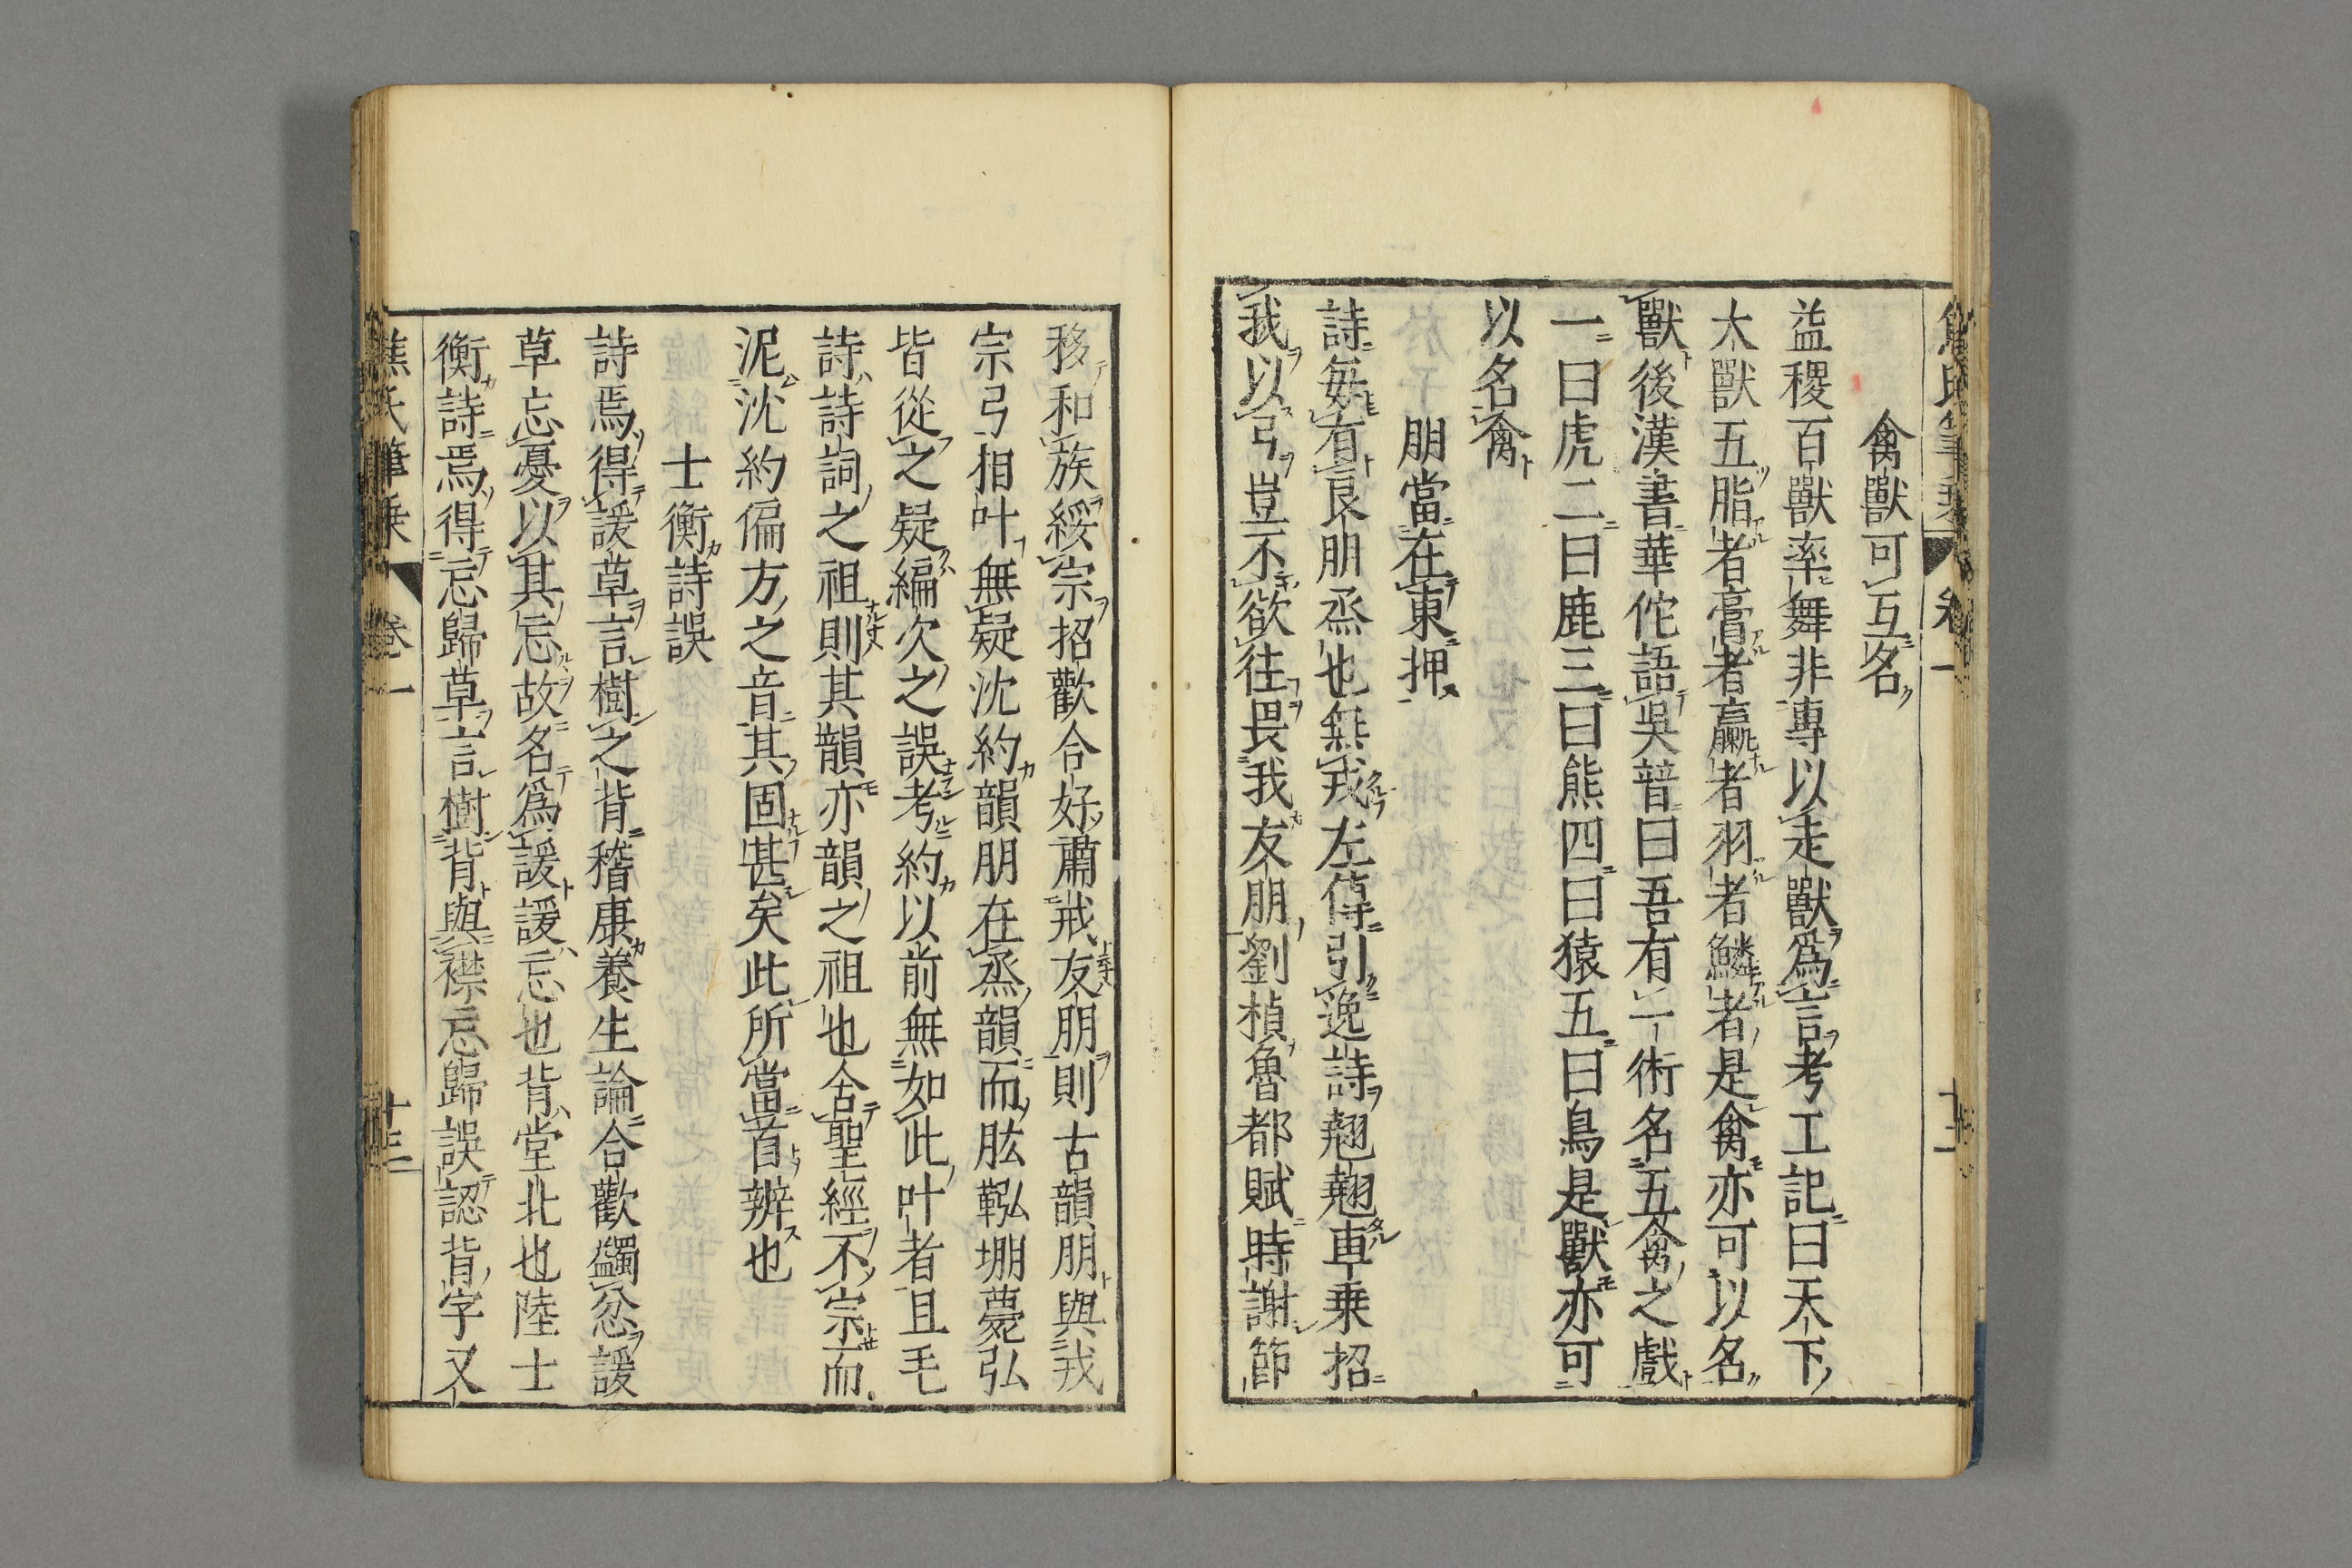 禽獸可互名
益稷百獸率舞非專以走獸爲言考工記曰天下
大獸五脂者膏者臝者羽者鱗者是禽亦可以名
獸後漢書華佗語吳普曰吾有一術名五禽之戲
一曰虎二曰鹿三曰熊四曰猿五曰鳥是獸亦可
以名禽
朋當在東押
詩每有良朋烝也無戎左傳引逸詩翹翹車乗招
我以弓豈不欲往畏我友朋劉楨魯都賦時謝節
移和族綏宗招歡合好肅戒友朋則古韻朋與戎
宗弓相叶無疑沈約韻朋在烝韻而肱䡌堋薨弘
皆從之疑編次之誤考約以前無如此叶者且毛
詩詩詞之祖則其韻亦韻之祖也舍聖經不宗而
泥沈約偏方之音其固甚矣此所當首辨也
士衡詩誤
詩焉得諼草言樹之背稽康養生論合歡蠲忿諼
草忘憂以其忘故名爲諼諼忘也背堂北也陸士
衡詩焉得忘歸草言樹背與襟忘歸誤認背字又
焦氏筆乗 卷一 十三